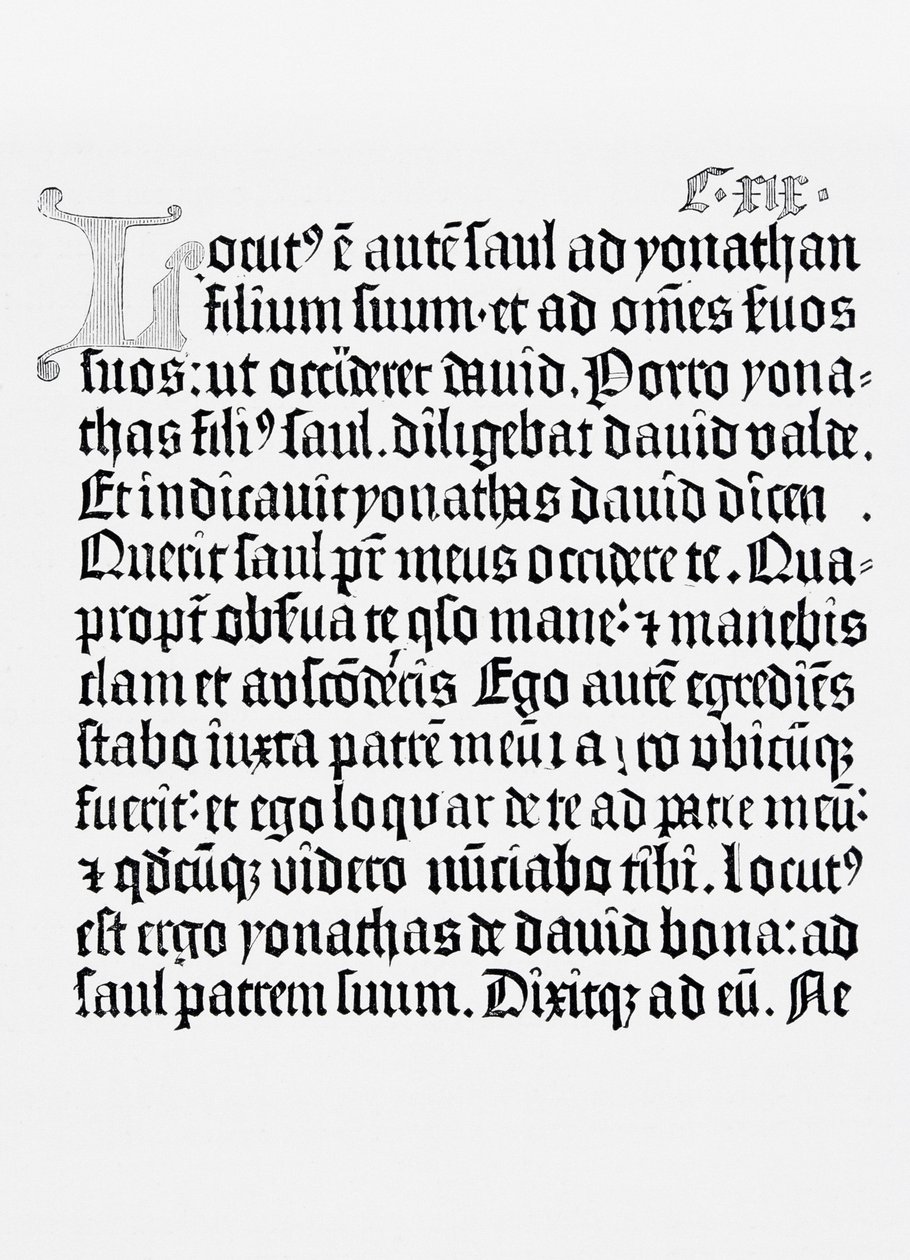 C. xix.
Locutꝰ ē autē ſaul ad yonathan
filium ſuum · et ad om̄es ſ̄uos
ſuos : ut occideret dauid . Porro yona⸗
thas filiꝰ ſaul . diligebat dauid valde .
Et indicauit yonathas dauid dicen .
Querit ſaul pr̄ meus occidere te . Qua⸗
propt̄ obſ̄ua te qſo mane : ⁊ manebis
clam et abſcōderis Ego autē egrediēs
ſtabo iuxta patrē meū ro vbicūqꝫ
fuerit : et ego loquar de te ad patrē meū :
⁊ qd̄cūqꝫ videro nūciabo tibi . locutꝰ
eſt ergo yonathas de dauid bona : ad
ſaul patrem ſuum . Dixitqꝫ ad eū . Ne